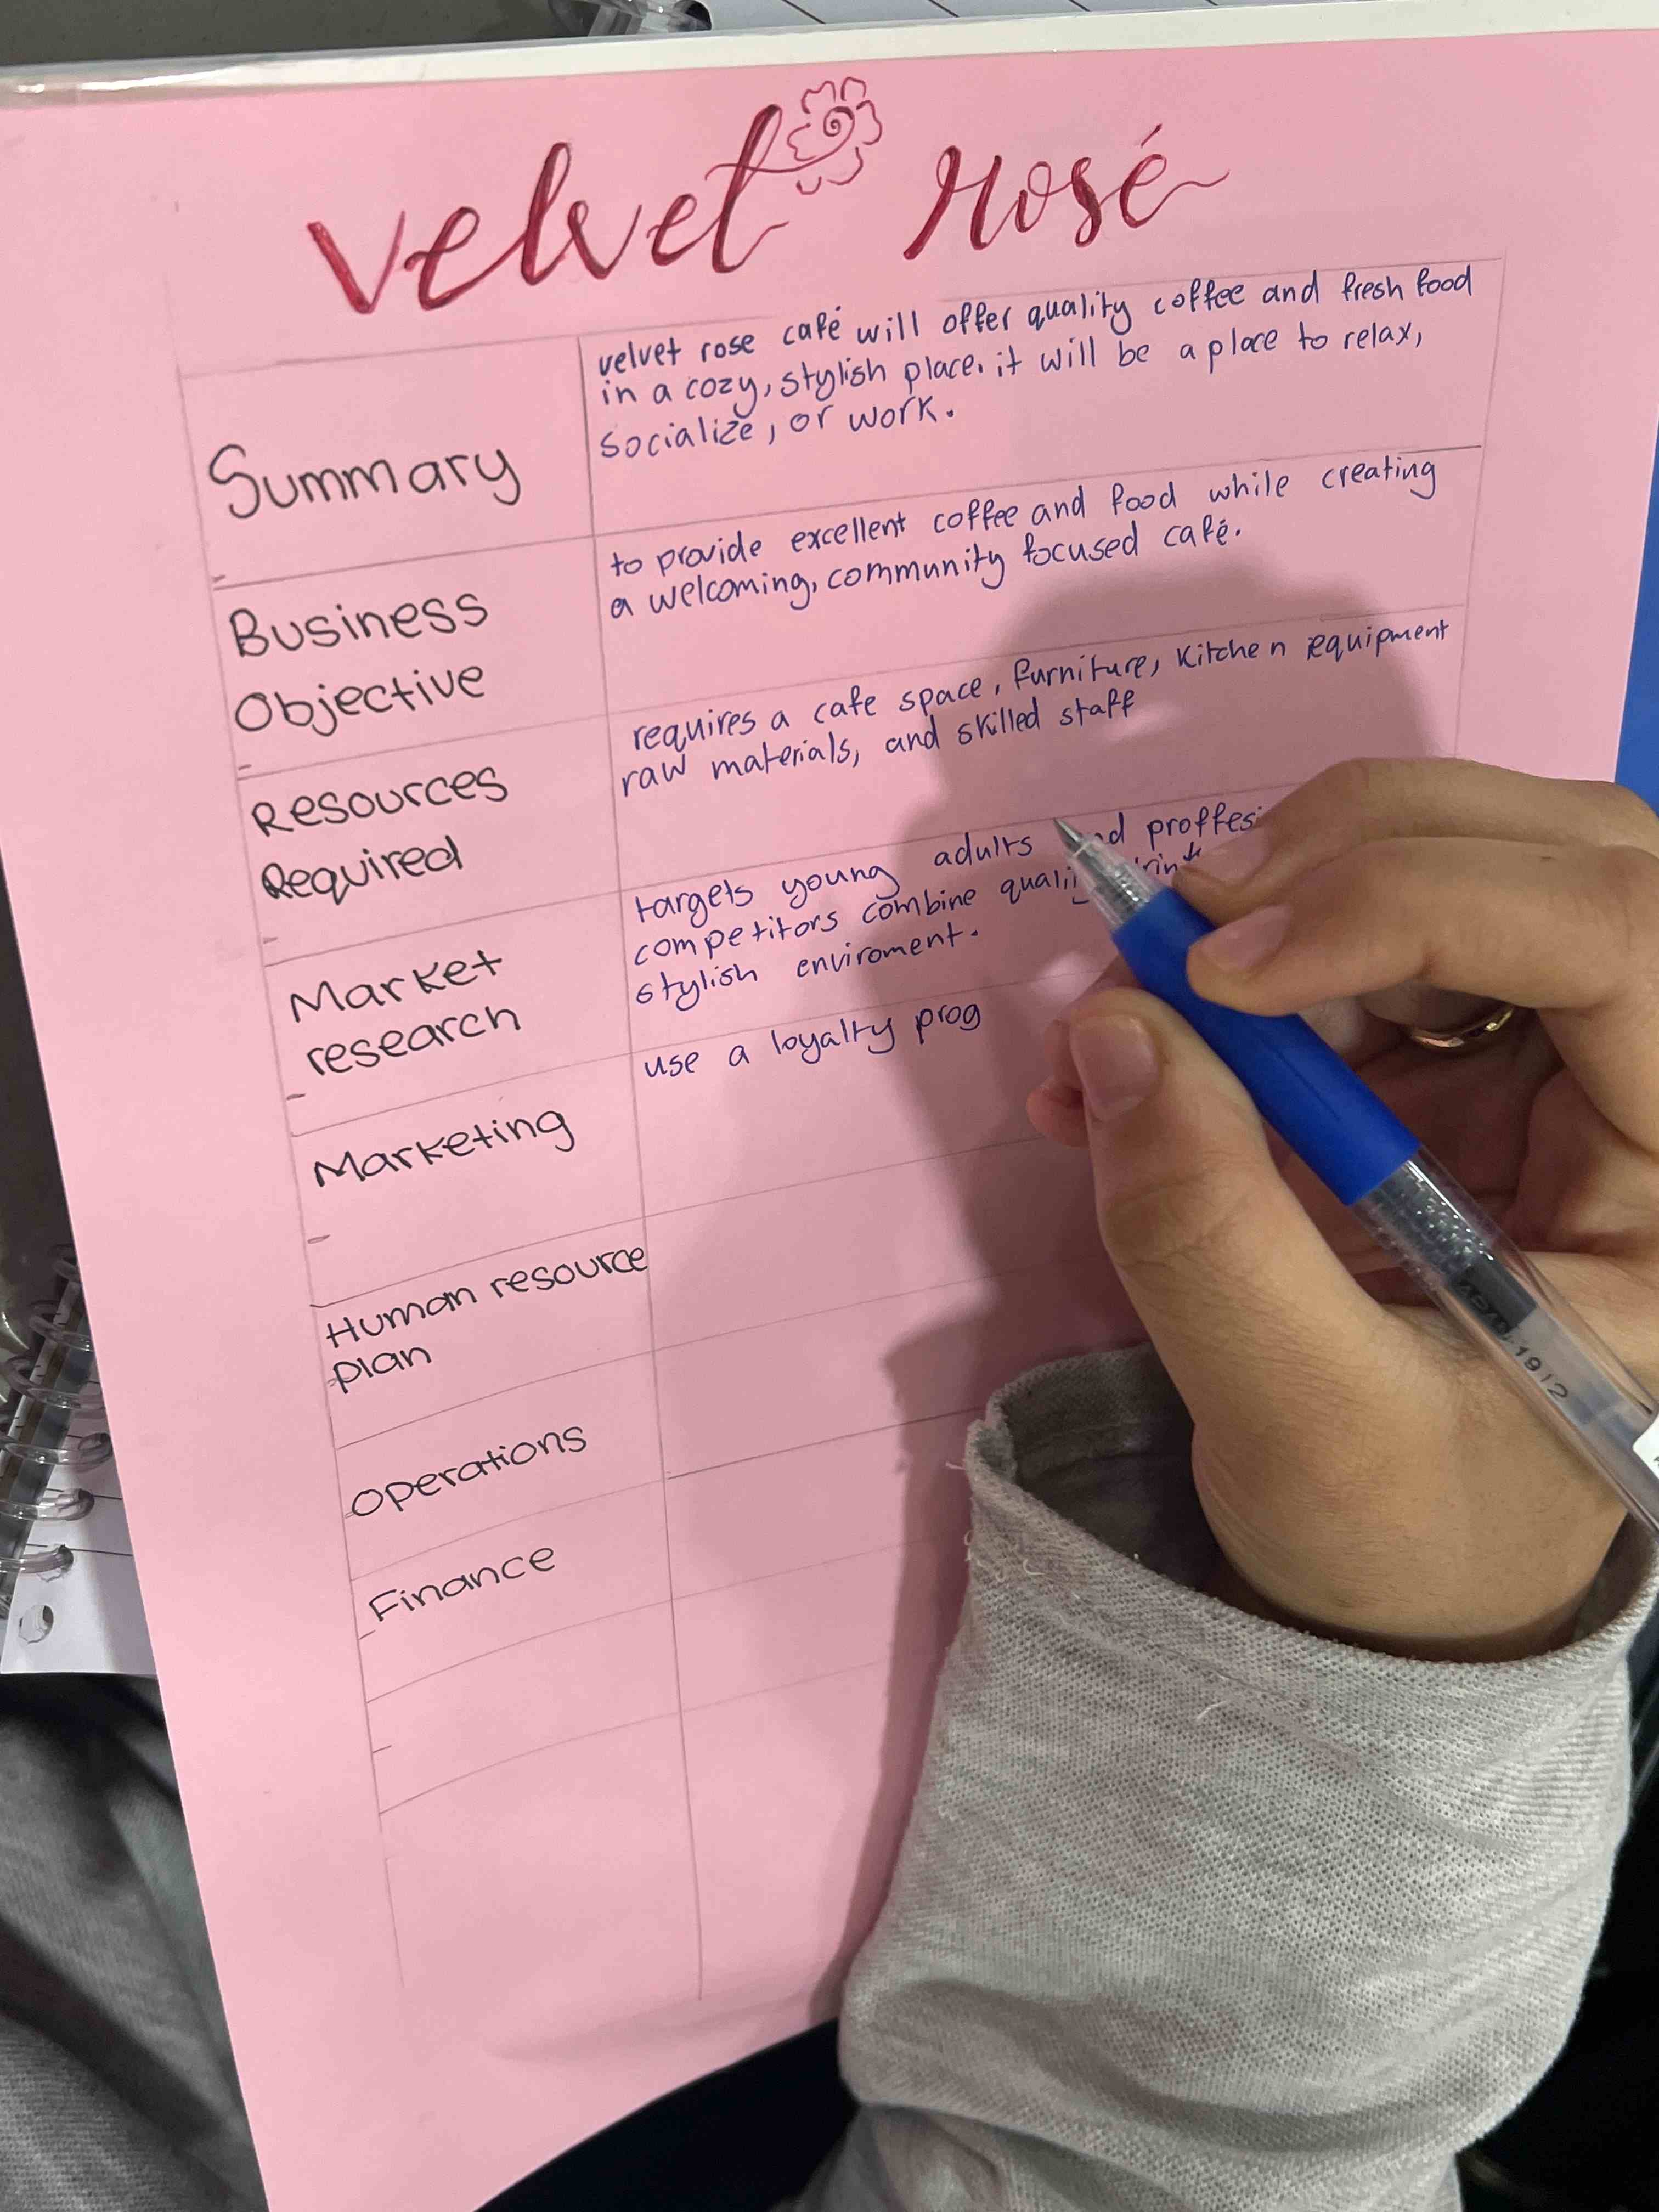 velvet rosé
Summary
velvet rose café will offer quality coffee and fresh food
in a cozy, stylish place. it will be a place to relax,
socialize, or work.
Business
Objective
to provide excellent coffee and food while creating
a welcoming, community focused café.
Resources
Required
requires a cafe space, furniture, kitchen equipment
raw materials, and skilled staff
Market
research
targets young adults
competitors combine
stylish enviroment.
Marketing
use a loyalty prog
Human resource
plan
Operations
Finance